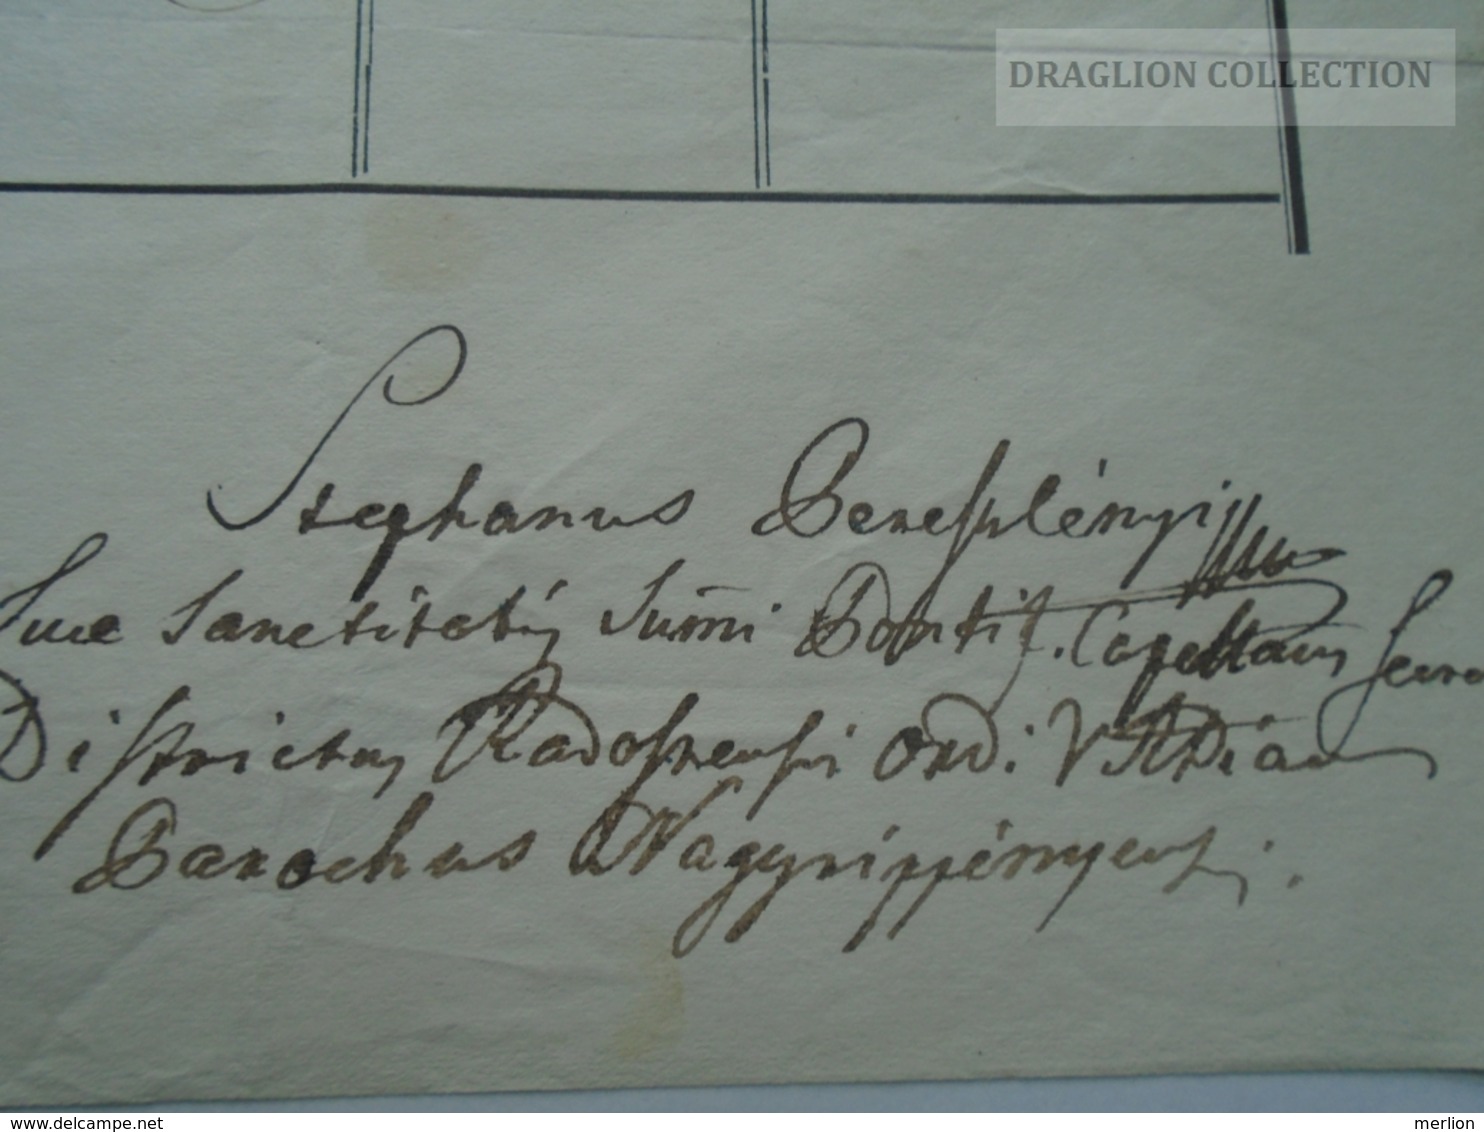 DRAGLION COLLECTION
Stephanus Bereszlényi
Suae Sanctitatis Sum̄i Pontif. Capellanus
Districtus Radoszensis ord: V. A Diac
Parochus Nagyrippényensi.
www.delcampe.net
merlion